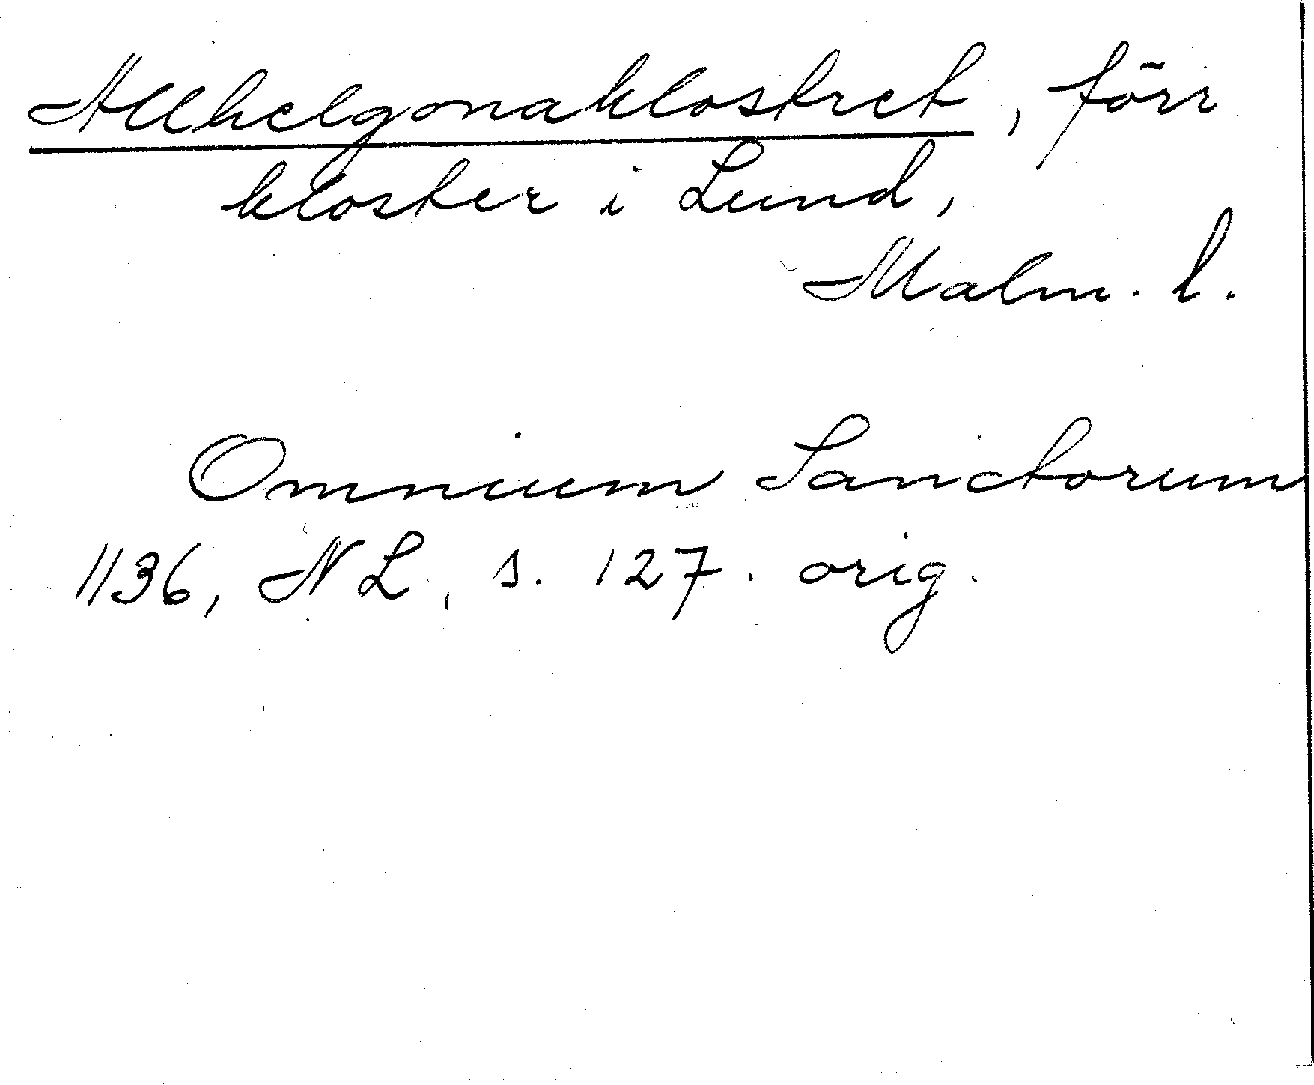 Allhelgonaklostret, förr
kloster i Lund,
Malm. l.
Omnium Sanctorum
1136, NL, s. 127. orig.